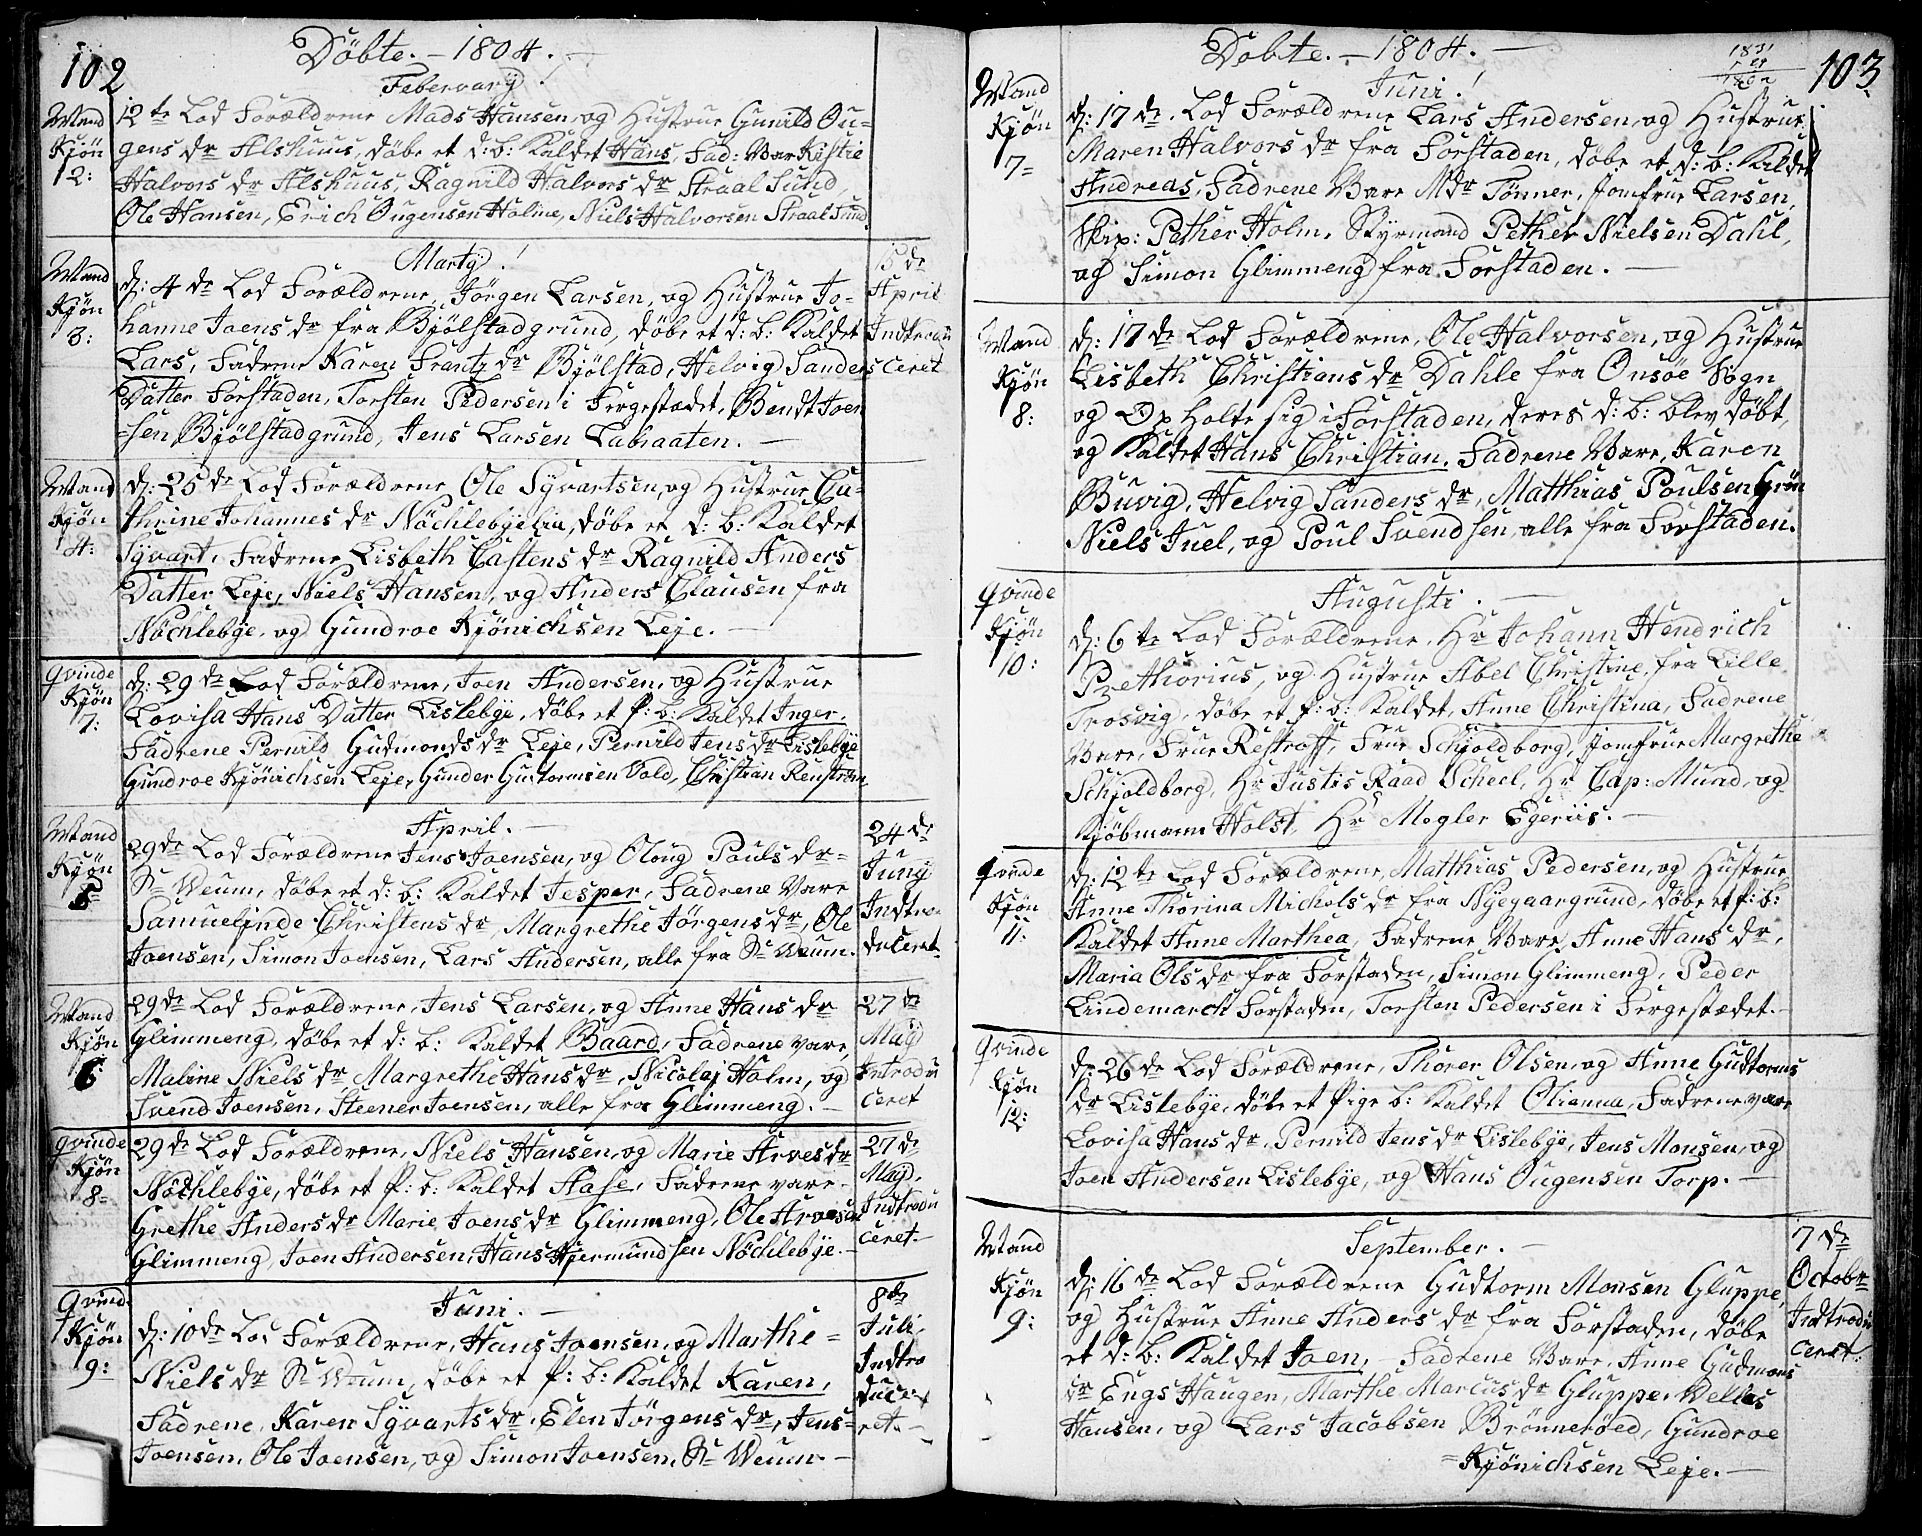 102
Döbte. – 1804. –
Febervary!
Mand
Kjøn
12:
12te Lod Forældrene Mads Hansen, og Hustrue Gunild Ou-
gens dr Alshuus, döbe et d: b: Kaldet Hans, Fad: Var Kistie
Halvors dr Alshuus, Ragnild Halvors dr Straal Sund,
Ole Hansen, Erich Ougensen Holme, Niels Halvorsen Straal Sund
Martij!
Mand
Kjøn
3:
d: 4de Lod Forældrene, Jörgen Larsen, og Hustrue Jo-
hanne Joens dr fra Bjölstadgrund, döbe et d: b: Kaldet
Lars, Fadrene Karen Frantz dr Bjölstad, Helvig Sanders
Datter Forstaden, Torsten Pedersen i Fergestædet, Bendt Joen
=sen Bjölstadgrund, Jens Larsen Labraaten. –
15de
April
Indtrodu
ceret
Mand
Kjøn
4:
d: 25de Lod Forældrene Ole Syvartsen, og Hustrue Ca-
thrine Johannes dr Nöchlebye, döbe et d: b: Kaldet
Syvart, Fadrene Lisbeth Castens dr Ragnild Anders
Datter Leje, Niels Hansen, og Anders Clausen fra
Nöchlebye, og Gundroe Kjönichsen Leje. –
qvinde
Kjøn
7:
d: 29de Lod Forældrene, Joen Andersen, og Hustrue
Lovisa Hans Datter Lislebye, döbe et P: b: Kaldet Inger,
Fadrene Pernild Gudmonds dr Leje, Pernild Jens dr Lislebye
Gundroe Kjönichsen Leje, Gunder Guttormsen Vold, Christian Renström
April. –
Mand
Kjøn
5
29de Lod Forældrene Jens Joensen, og Oloug Pouls dr =
Sr Weum, döbe et d: b: Kaldet Jesper, Fadrene Vare
Samuelinde Christens dr, Margrethe Jörgens dr, Ole
Joensen, Simon Joensen, Lars Andersen, alle fra Sr Weum.
24de
Junij
Indtro
duceret
Mand
Kjøn
6
29de Lod Forældrene, Jens Larsen, og Anne Hans dr
Glimmeng, döbe et d: b: Kaldet Baard, Fadrene vare,
Maline Niels dr, Margrethe Hans dr, Nicolaj Holm, og
Svend Joensen, Steener Joensen, alle fra Glimmeng. –
27de
Maij
Introdu
ceret
qvinde
Kjøn
8=
29de Lod Forældrene, Niels Hansen, og Marie Arves dr
Nöchlebye, döbe et P: b: Kaldet Aase, Fadrene vare
Grethe Anders dr Marie Joens dr Glimmeng, Ole Arvesen
Glimmeng, Joen Andersen, Hans Hjermundsen Nöchlebye. –
27de
Maij,
Indtrodu
ceret. –
Juni. –
qvinde
Kjøn
9:
d: 10de Lod Forældrene, Hans Joensen, og Marthe =
Niels dr Sr Weum, döbe et P: b: Kaldet Karen,
Fadrene, Karen Syvarts dr, Elen Jörgens dr, Jens =
Joensen, Ole Joensen, og Simon Joensen, Sr Weum –
8de
Juli,
Indtro
duce=
ret. –
Döbte. – 1804. –
103
1831
Juni!
Mand
Kjøn
7=
d: 17de. Lod Forældrene Lars Andersen, og Hustrue,
Maren Halvors dr fra Forstaden, döbe et d: b: Kaldet
Andreas, Fadrene Vare Mdr Tönner, Jomfrue Larsen,
Skip: Pether Holm, Styrmand Pether Nielsen Dahl,
og Simon Glimmeng fra Forstaden. –
Mand
Kjøn
8:
d: 17de Lod Forældrene, Ole Halvorsen, og Hustrue
Lisbeth Christians dr Dahle fra Onsöe Sogn
og Op Holte sig i Forstaden, deres d: b: blev döbt,
og Kaldet Hans Christian, Fadrene Vare, Karen
Buvig, Helvig Sanders dr, Matthias Poulsen Grön
Niels Juel, og Poul Svendsen, alle fra Forstaden.
Augusti. –
qvinde
Kjøn
10:
d: 6te Lod Forældrene, Hr Johann Hendrich
Prethorius, og Hustrue Abel Christine, fra Lille
Trosvig, döbe et P: b: Kaldet, Anne Christina, Fadrene
Vare, Frue Restroff, Frue Schjoldborg, Jomfrue Margrethe
Schjoldborg, Hr Justis Raad Scheel, Hr Cap: Mund, og
Kjöbmann Holst, Hr Mogler Egeriis. –
qvinde
Kjøn
11:
d: 12te Lod Forældrene, Matthias Pedersen, og Hustrue
Anne Thorina Michels dr fra Nyegaargrund, döbe et P: b:
Kaldet Anne Marthea, Fadrene Vare, Anne Hans dr,
Maria Ols dr fra Forstaden, Simon Glimmeng, Peder
Lindemarch Forstaden, Torsten Pedersen i Fergestædet. –
qvinde
Kjøn
12:
d: 26de Lod Forældrene, Thorer Olsen, og Anne Gudtorms
dr Lislebye, döbe et Pige b: Kaldet Olianna, Fadrene vare
Lovisa Hans dr, Pernild Jens dr Lislebye, Jens Monsen, og
Joen Andersen Lislebye, og Hans Ougensen Torp. –
September. –
Mand
Kjøn
9:
d: 16de Lod Forældrene Gudtorm Monsen Gluppe,
og Hustrue Anne Anders dr fra Forstaden, döbe
et d: b: Kaldet Joen, Fadrene Vare, Anne Gudmons
dr Engs Haugen, Marthe Marcus dr Gluppe, Vellas
Hansen, og Lars Jacobsen Brönneröed, Gundroe
=Kjönichsen Leje. –
7de
Octobr
Indtrodu
ceret.